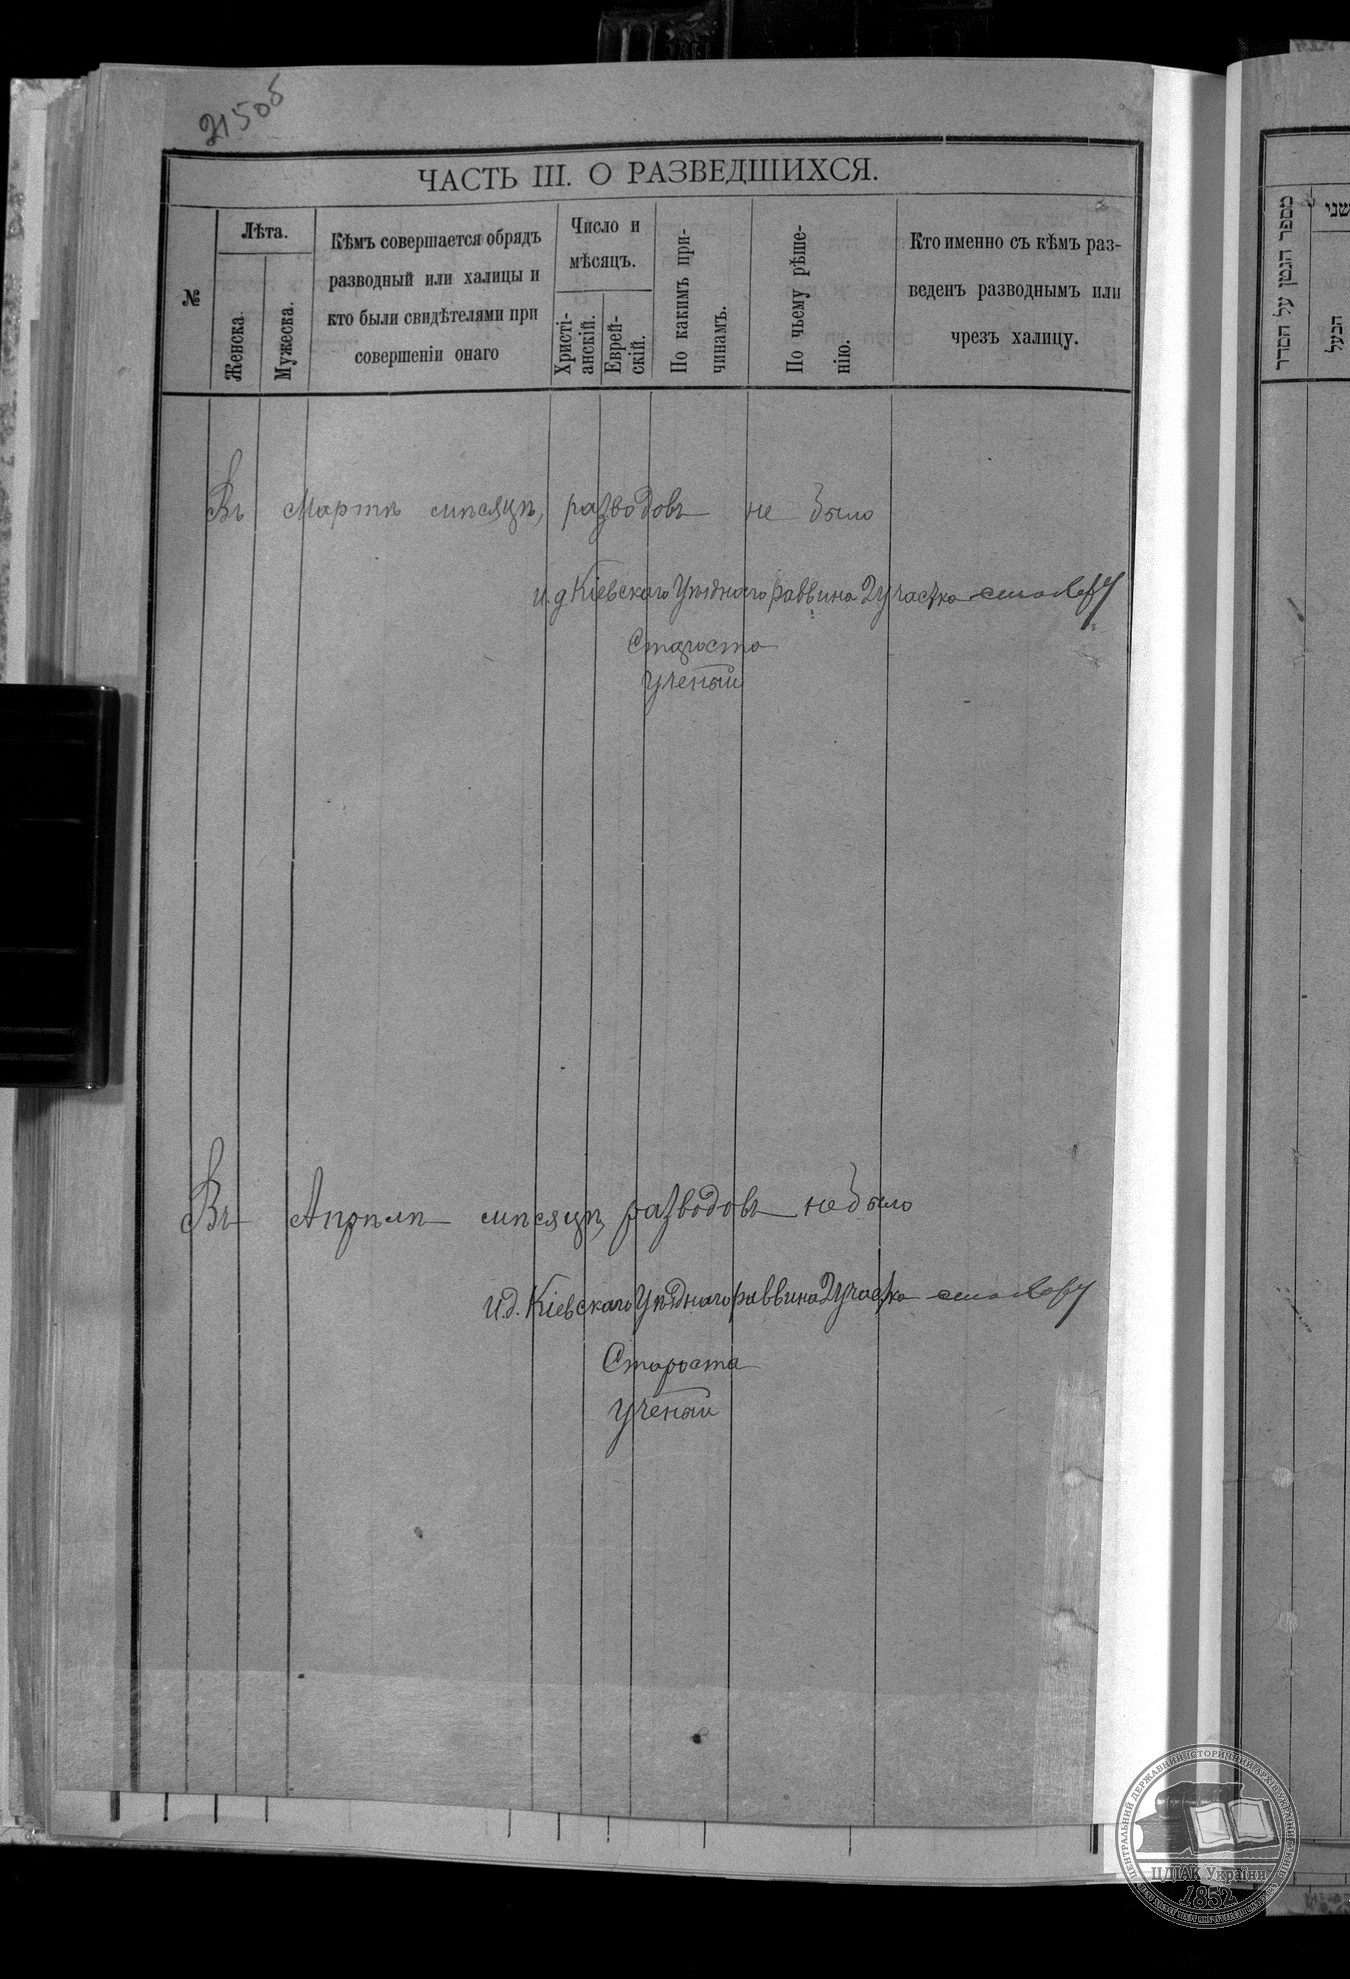 21506
ЧАСТЬ III. О РАЗВЕДШИХСЯ.
№
Лѣта.
Женска.
Мужеска.
Кѣмъ совершается обрядъ
разводный или халицы и
кто были свидѣтелями при
совершеніи онаго
Число и
мѣсяцъ.
Христі-
анскій.
Еврей-
скій.
По какимъ при-
чинамъ.
По чьему рѣше-
нію.
Кто именно съ кѣмъ раз-
веденъ разводнымъ или
чрезъ халицу.
Въ Мартѣ мѣсяцѣ, разводовъ не было
И.д Кіевскаго Уѣзднаго раввина 2 участка
Староста
Ученый
Въ Апрѣлѣ мѣсяцѣ разводовъ не было
И.д. Кіевскаго Уѣзднаго раввина 2 участка
Староста
Ученый
מספר הגטין על הסדר
שני
הבעל
ЦЕНТРАЛЬНИЙ ДЕРЖАВНИЙ ІСТОРИЧНИЙ АРХІВ УКРАЇНИ
ЦДІАК України
1852